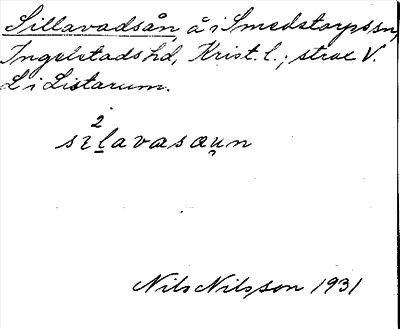 Sillavadsån, å i Smedstorps sn,
Ingelstads hd, Krist. l.; strax V.
L i Listarum.
2
sɪlavasaun
Nils Nilsson 1931